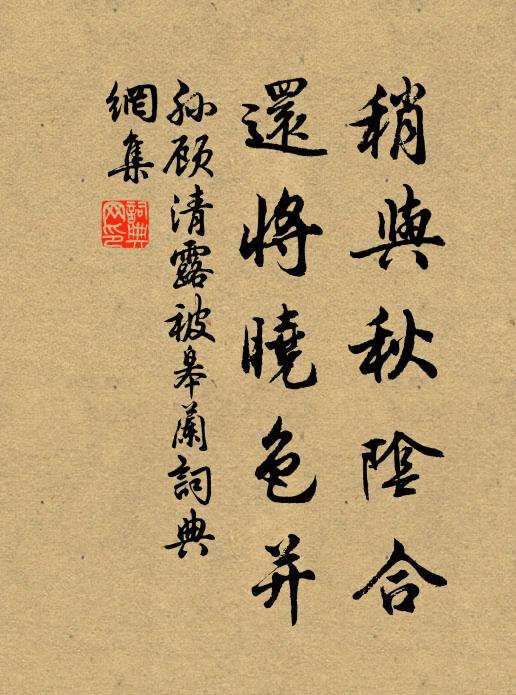 稍與秋陰合
還將曉色并
孙顾清露被皋蘭詞典
網集
詞典
网印